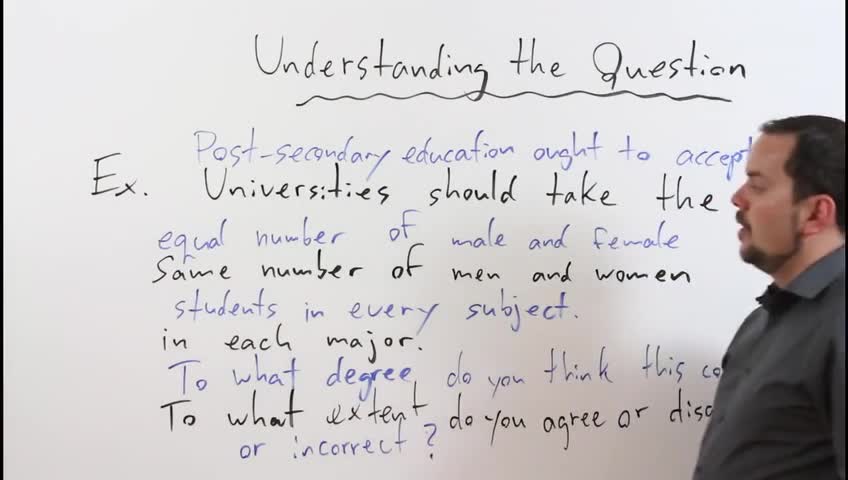 Understanding the Question
Post-secondary education ought to accept
Ex. Universities should take the
equal number of male and female
Same number of men and women
students in every subject.
in each major.
To what degree do you think this
To what extent do you agree or
or incorrect?